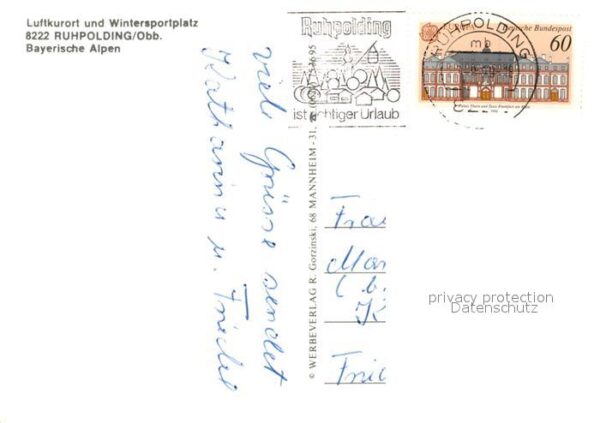 Luftkurort und Wintersportplatz
8222 RUHPOLDING/Obb.
Bayerische Alpen
Ruhpolding
ist richtiger Urlaub
RUHPOLDING
mb
Deutsche Bundespost
60
viele Grüsse sendet
Katharina u.
© WERBEVERLAG R. Gorzinski, 68 MANNHEIM - 31,
Frau
Mar
(b.
K
Frie
privacy protection
Datenschutz